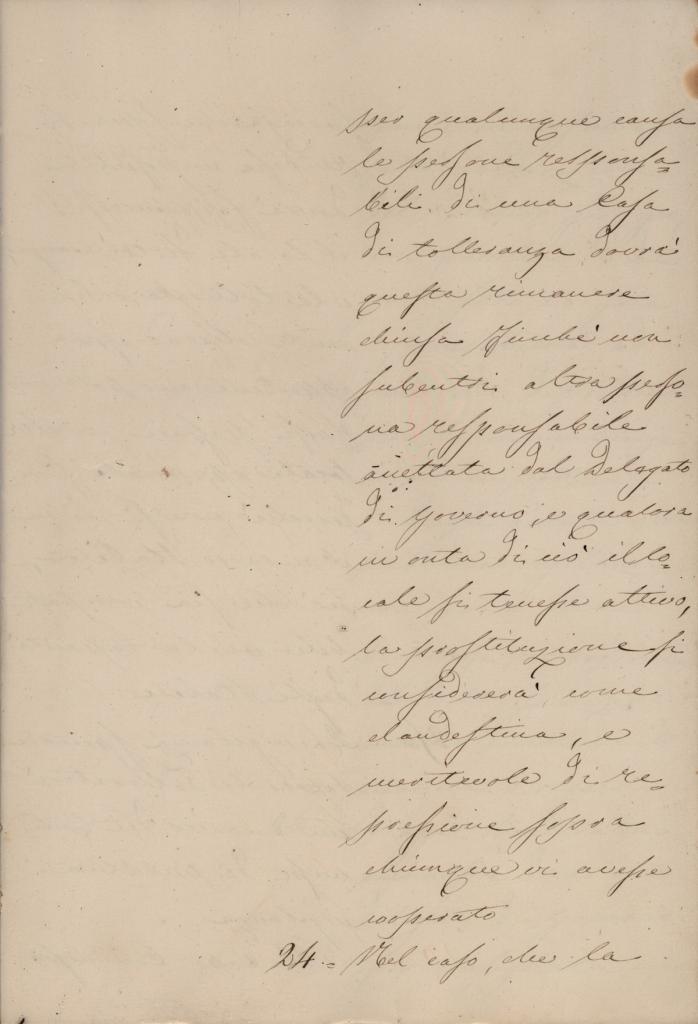 per qualunque causa
le persone responsa=
bili di una Casa
di tolleranza dovrà
questa rimanere
chiusa finchè non
subentri altra perso=
na responsabile
accettata dal Delegato
di Governo, e qualora
in onta di ciò il lo=
cale si tenesse attivo,
la prostituzione si
considererà come
clandestina, e
meritevole di re=
pressione sopra
chiunque vi avesse
cooperato
24.= Nel caso, che la